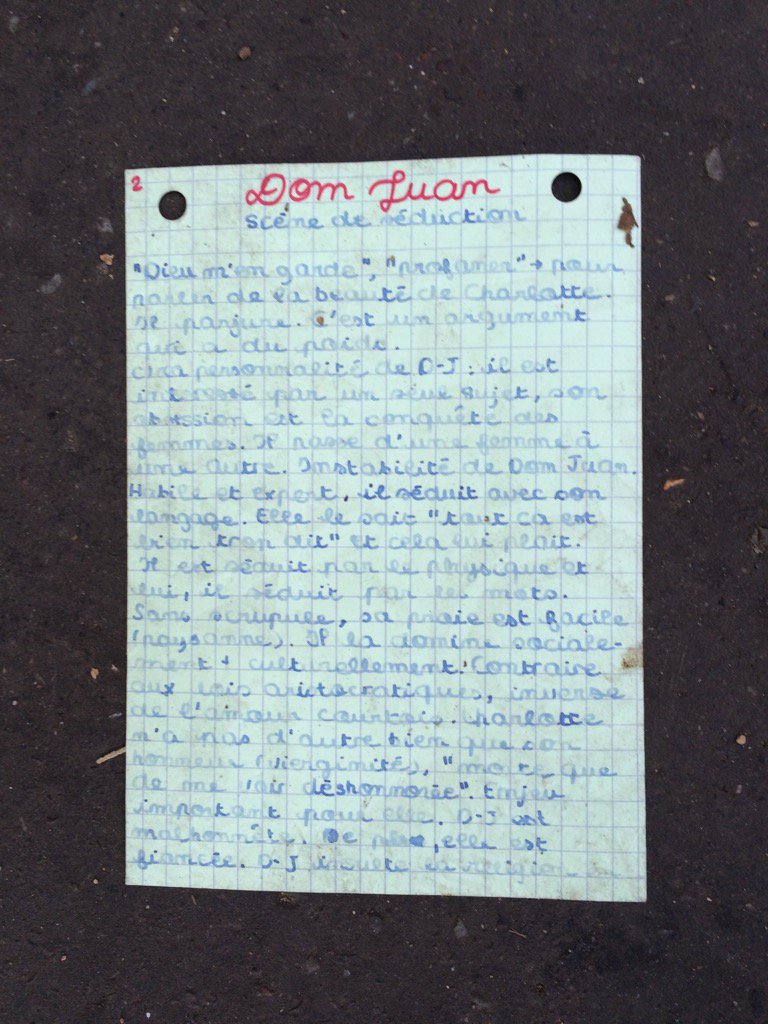 2
Dom Juan
Scène de séduction
"Dieu m'en garde", "profaner" → pour
parler de la beauté de Charlotte.
Il parjure. C'est un argument
qui a du poids.
personnalité de D-J : il est
intéressé par un seul sujet, son
obsession est la conquête des
femmes. Il passe d'une femme à
une autre. Instabilité de Dom Juan.
Habile et expert, il séduit avec son
langage. Elle le sait "tout ça est
bien trop dit" et cela lui plait.
Il est séduit par le physique et
lui, il séduit par les mots.
Sans scrupule, sa proie est facile
(paysanne). Il la domine sociale-
ment + culturellement. Contraire
aux lois aristocratiques, inverse
de l'amour courtois. Charlotte
n'a pas d'autre bien que son
honneur (vierginité), "morte que
de me voir déshonnorée". Enjeu
important pour elle. D-J est
malhonnête. De plus, elle est
fiancée. D-J insulte la religion